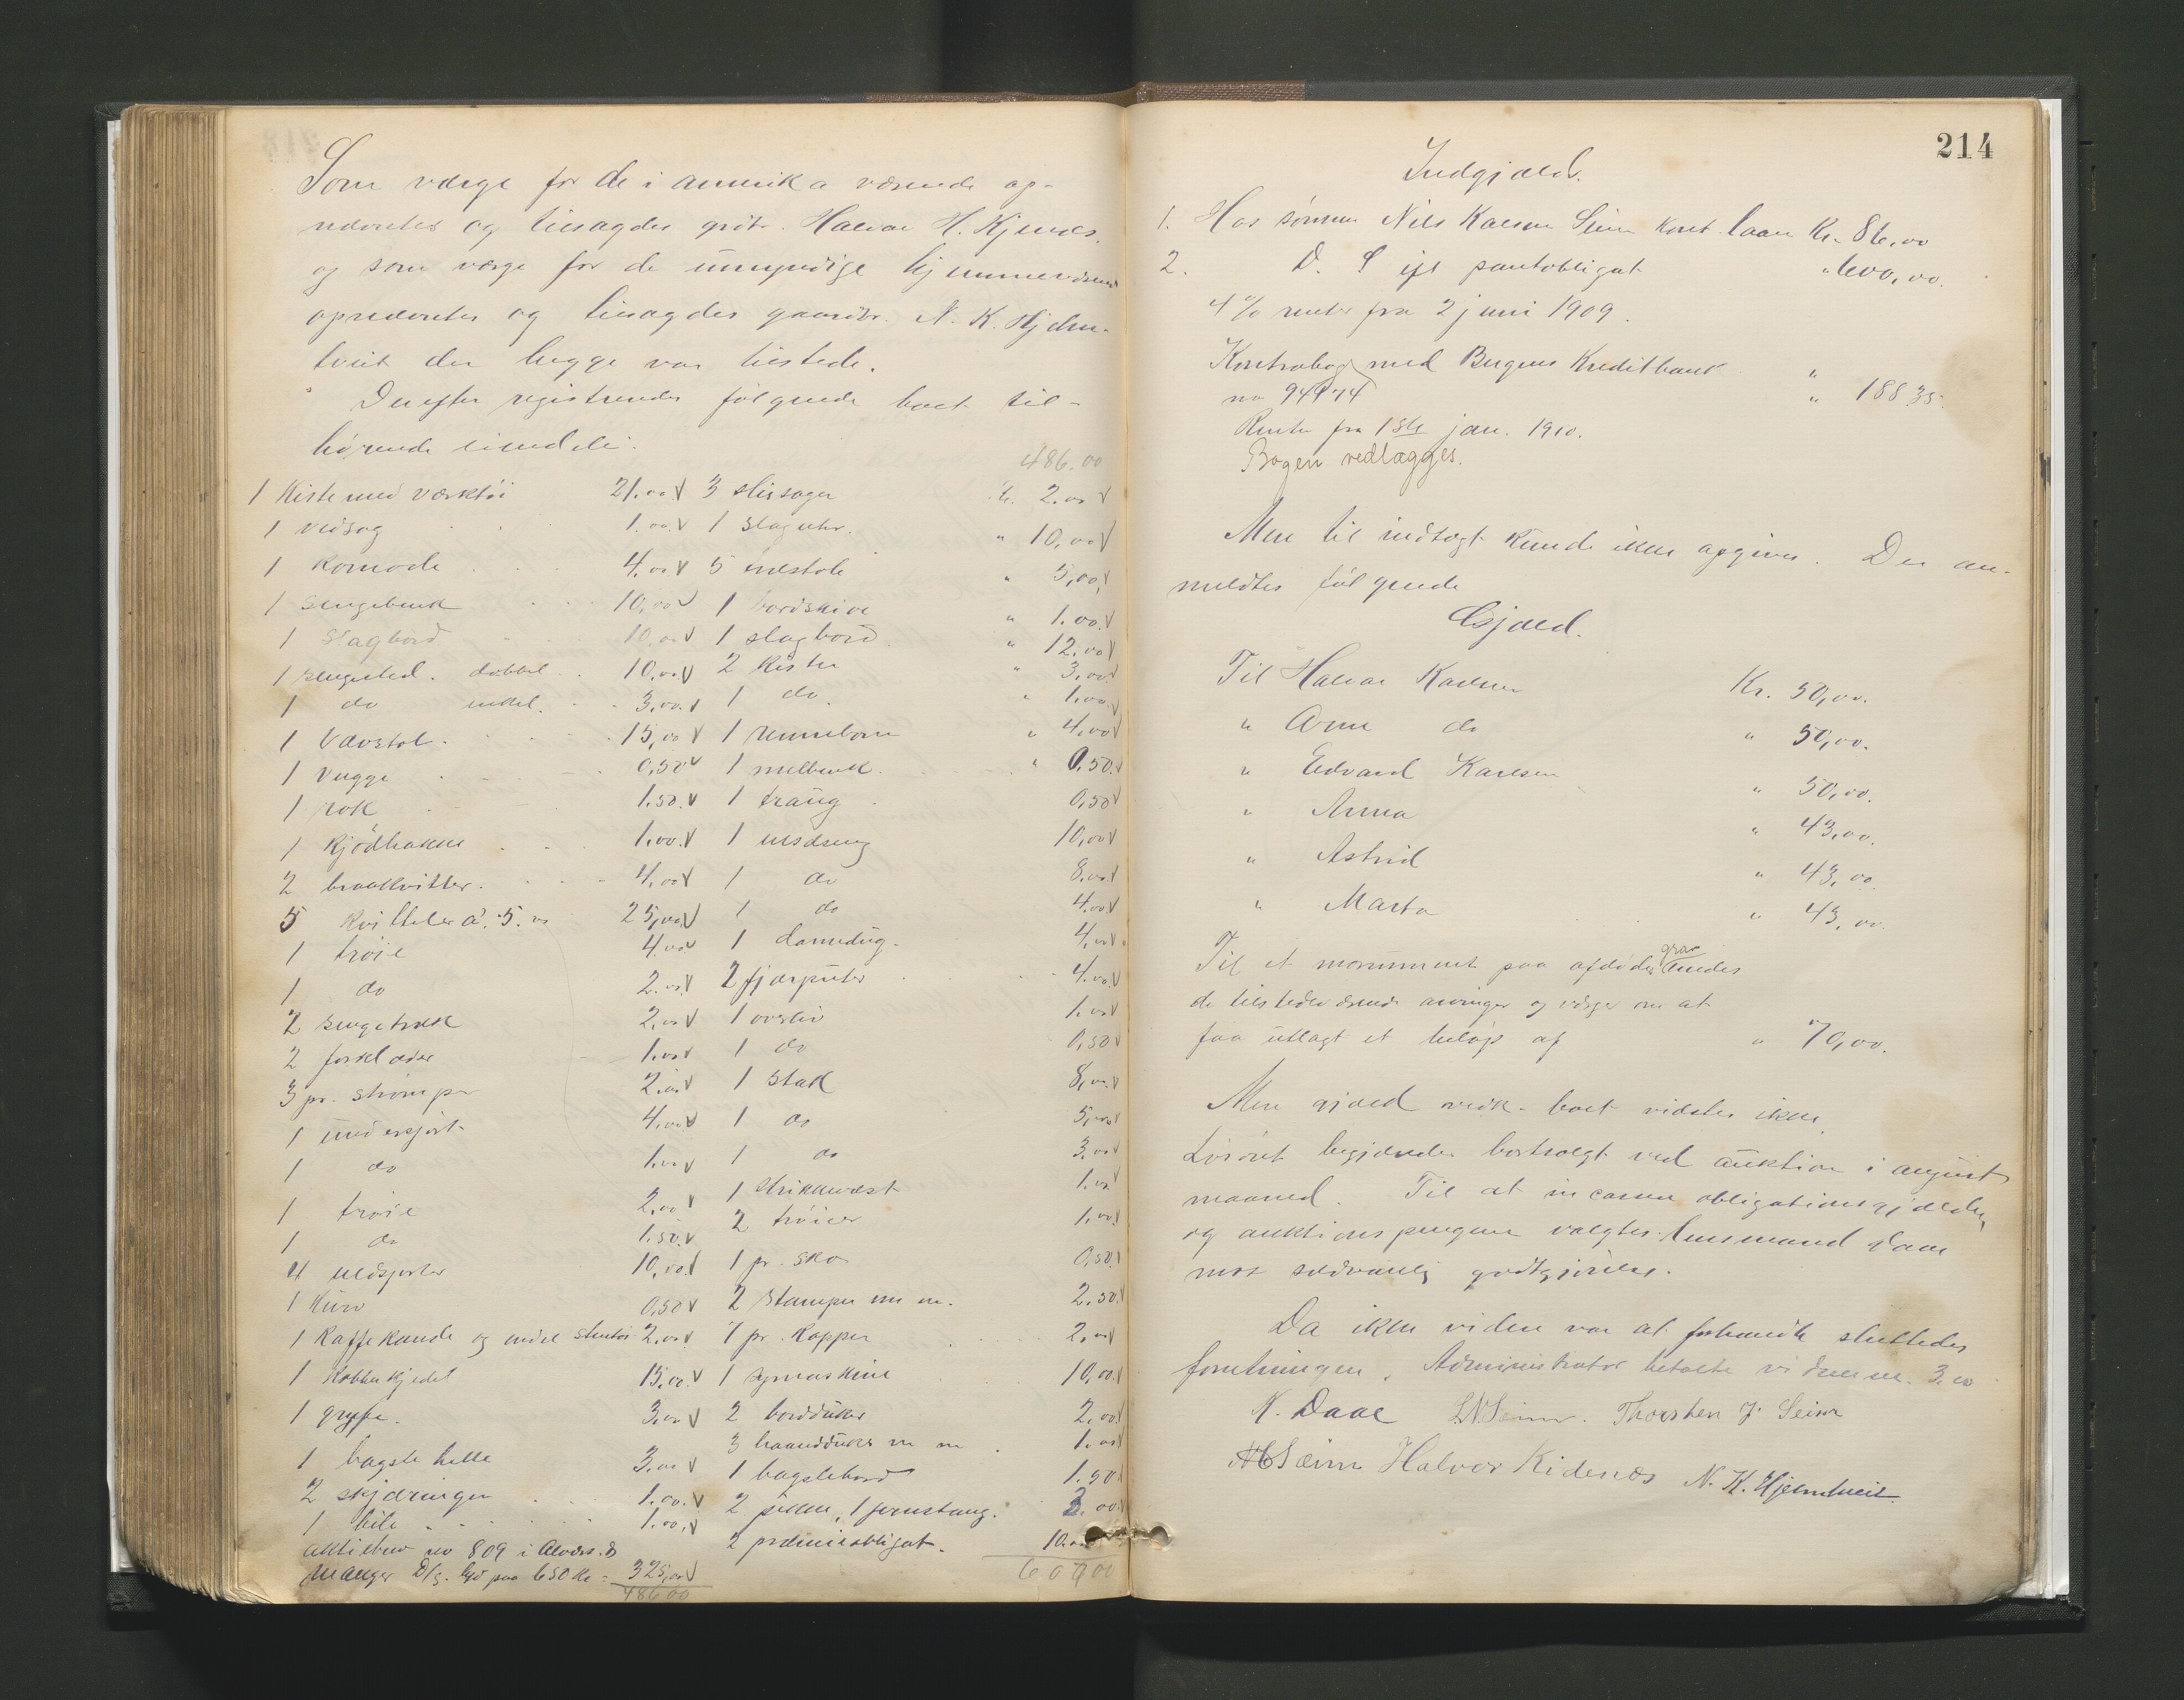 Som værge for de i amerika værende op-
nævntes og tilsagdes grdbr. Halvor H. Kjenes.
og som værge for de umyndige hjemmeværende
oprævntes og tilsagdes gaardbr. N. K. Hjelm-
tveit der begge var tilstede.
Derefter registreredes følgende boet til-
hørende eiendele:
486.00
1 Kiste med værktøi 21.00
1 vedsag 1.00
1 Komode 4.00
1 sengebenk 10,00
1 Slagbord 10.00
1 sengested. dobbel 10,00
1 do enkel. 3,00
1 Vævstol 15,00
1 Vugge 0,50
1 rok 1.50
1 Kjødhakke 1.00
2 braakvitler. 4,00
5 Kvitteler a. 5.00 25,00
1 trøie 4.00
1 do 2.00
2 sengetræk 2,00
2 forklæder 1.00
3 pr. strømper 2.00
1 underskjørt 4.00
1 do 1.00
1 trøie 2,00
1 do 1.50
4 uldskjorter 10,00
1 Kurv 0,50
1 Kaffekande og endel stentøi 2.00
1 Kobberkjedel 15,00
1 gryte. 3,00
1 bagstehelle 3,00
2 skjæringer 1.00
1 bile 1.00
aktiebrev no 809 i Alvers. &
Manger D/s. lyd. paa 650 Kr = 325,00
486.00
3 stissager Kr. 2.00
1 slaguhr. " 10,00
5 træstole " 5,00
1 bordskive " 1.00
1 slagbord " 12.00
2 Kister " 3,00
1 do. " 1.00
1 rennebom " 4.00
1 melbenk. " 0,50
1 traug 0,50
1 uldseng 10,00
1 do 8.00
1 do 4.00
1 damedug. 4,00
2 fjærputer 4.00
1 overliv 1.00
1 do 0,50
1 Stak 8,00
1 do 5,00
1 do 3.00
1 strikkevest 1.00
2 trøier 1,00
1 pr. sko 0,50
2 Stamper m m. 2.50
7 pr. Kopper 2,00
1 symaskine 10,00
2 bordduker 2,00
3 haandduker m m 1.00
1 bagstebord 1.50
2 , 1 jernstang. 00
2 præmieobligat. 10.00
60700
214
Indgjæld.
1. Hos sønnen Nils Karlsen Seim kont. laan Kr. 86,00
2. D. S ifl pantobligat " 600,00.
4% renter fra 2 juni 1909.
Kontrabog med Bergens Kreditbank "
no 94974 " 188 35
Rente fra 1ste jan. 1910.
Bogen vedlægges.
Mere til indtægt kunde ikke opgives. Der an-
meldtes følgende
Gjæld.
Til Halvor Karlsen Kr. 50,00.
" Arne do " 50,00.
" Edvard Karlsen " 50,00.
" Anna " 43,00.
" Astrid " 43,00.
" Marta " 43,00.
Til et monument paa afdødes grav
de tilstedeværende arvinger og værger om at
faa utlagt et beløp af " 70,00.
Mere gjæld vedk. boet vidstes ikke.
Løsøret begjæredes bortsolgt ved auktion i august
maaned. Til at incasere obligationsgjælden
og auktionspengene valgtes lensmand Daae
mot sædvanlig godtgjørelse.
Da ikke videre var at forhandle sluttedes
forretningen. Administrator betalte vidnerne. 3.00
K. Daae L N Seim. Thorsten J. Seim
Seim Halvor Kidenæs N. K. Hjelmtveit.